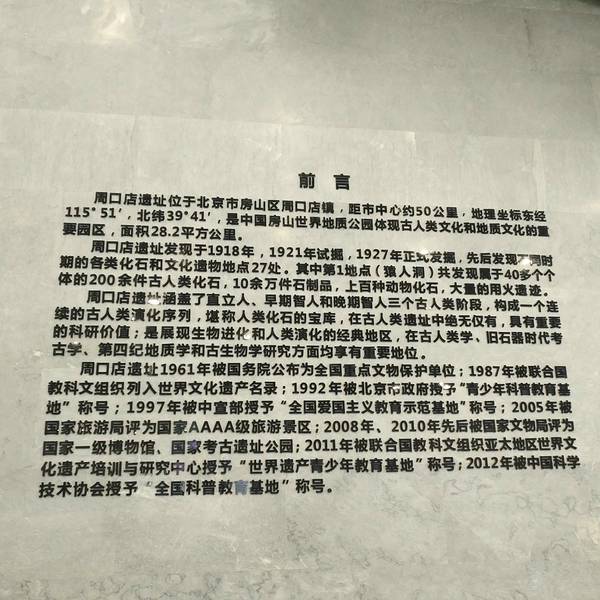 前言
周口店遗址位于北京市房山区周口店镇，距市中心约50公里，地理坐标东经
115°51′，北纬39°41′，是中国房山世界地质公园体现古人类文化和地质文化的重
要园区，面积28.2平方公里。
周口店遗址发现于1918年，1921年试掘，1927年正式发掘，先后发现不同时
期的各类化石和文化遗物地点27处。其中第1地点（猿人洞）共发现属于40多个个
体的200余件古人类化石，10余万件石制品，上百种动物化石，大量的用火遗迹。
周口店遗址涵盖了直立人、早期智人和晚期智人三个古人类阶段，构成一个连
续的古人类演化序列，堪称人类化石的宝库，在古人类遗址中绝无仅有，具有重要
的科研价值；是展现生物进化和人类演化的经典地区，在古人类学、旧石器时代考
古学、第四纪地质学和古生物学研究方面均享有重要地位。
周口店遗址1961年被国务院公布为全国重点文物保护单位；1987年被联合国
教科文组织列入世界文化遗产名录；1992年被北京市政府授予“青少年科普教育基
地”称号；1997年被中宣部授予“全国爱国主义教育示范基地”称号；2005年被
国家旅游局评为国家AAAA级旅游景区；2008年、2010年先后被国家文物局评为
国家一级博物馆、国家考古遗址公园；2011年被联合国教科文组织亚太地区世界文
化遗产培训与研究中心授予“世界遗产青少年教育基地”称号；2012年被中国科学
技术协会授予“全国科普教育基地”称号。